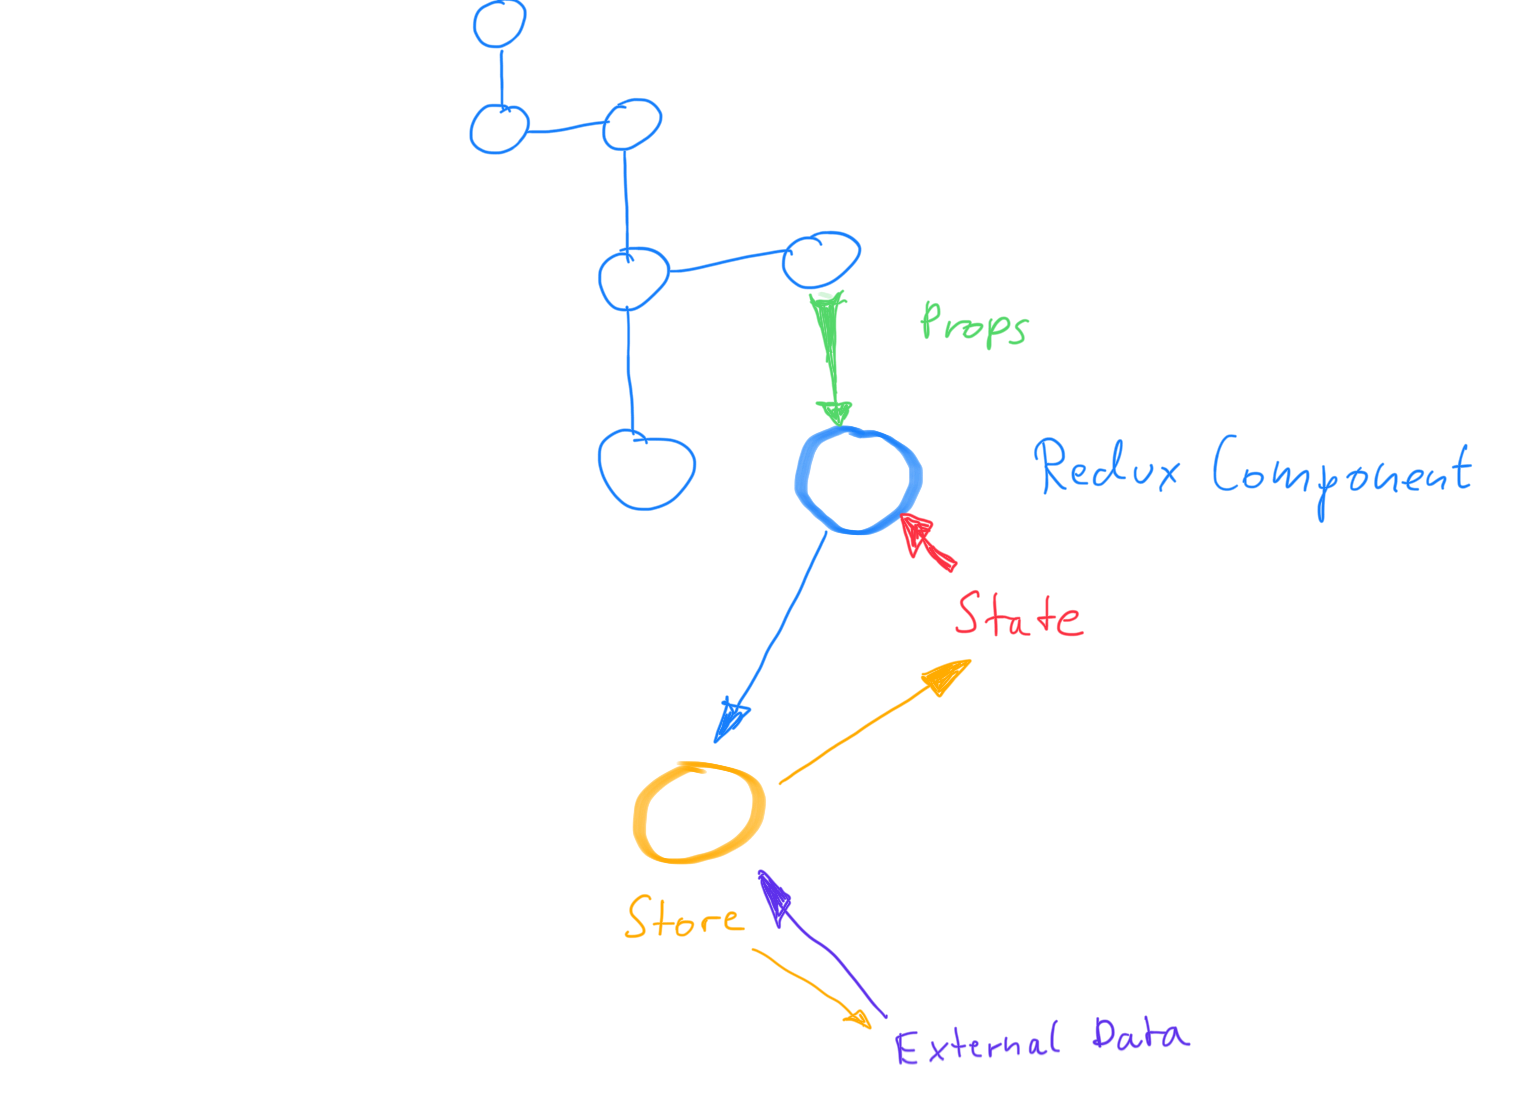 Props
Redux Component
State
Store
External Data